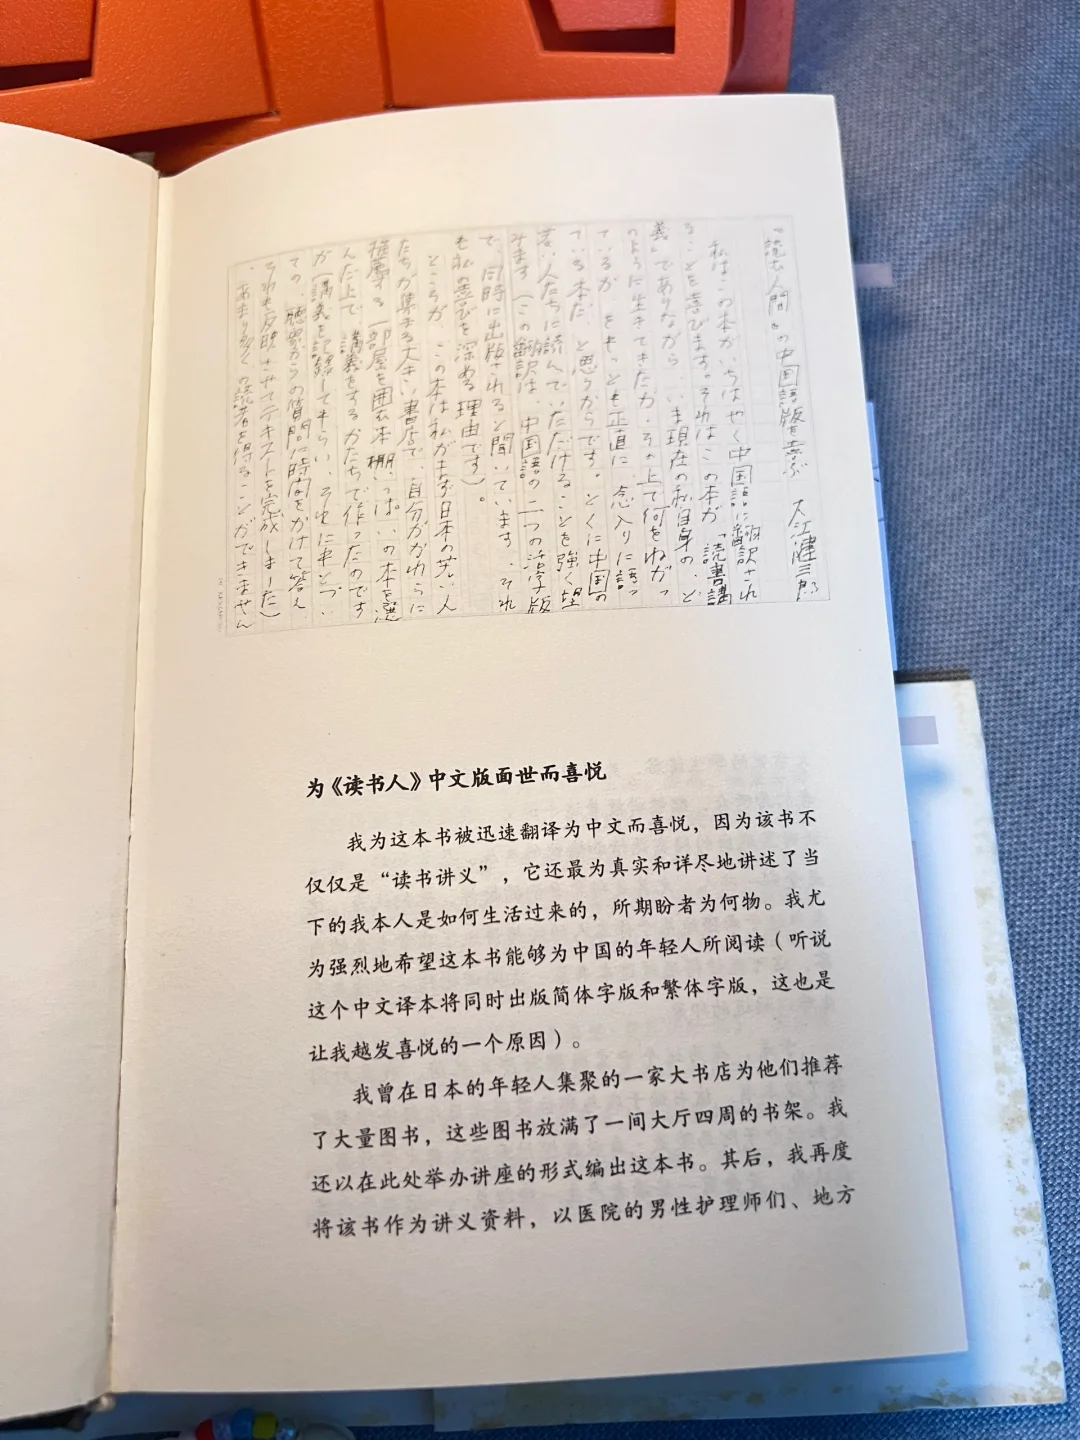 『読む人間』の中国語版を喜ぶ 大江健三郎
私はこの本がいちはやく中国語に翻訳され
ることを喜びます。それはこの本が「読書講
義」でありながら、いま現在の私自身の、ど
のように生きてきたか、その上で何をねがっ
ているか、をもっとも正直に、念入りに語っ
ている本だ、と思うからです。とくに中国の
若い人たちに読んでいただけることを強く望
みます(この翻訳は、中国語の二つの活字版
で、同時に出版されると聞いています、それ
も私の喜びを深める理由です)。
ところが、この本は私がまず日本の若い人
たちが集まる大きい書店で、自分がかれらに
推薦する一部屋を囲む本棚いっぱいの本を選
んだ上で、講義をするかたちで作ったのです
が(講義を記録してもらい、それにもとづい
ての、聴衆からの質問に時間をかけて答え、
それも反映させてテキストを完成しました)
、あまり多くの読者を得ることができません
为《读书人》中文版面世而喜悦
我为这本书被迅速翻译为中文而喜悦，因为该书不
仅仅是“读书讲义”，它还最为真实和详尽地讲述了当
下的我本人是如何生活过来的，所期盼者为何物。我尤
为强烈地希望这本书能够为中国的年轻人所阅读（听说
这个中文译本将同时出版简体字版和繁体字版，这也是
让我越发喜悦的一个原因）。
我曾在日本的年轻人集聚的一家大书店为他们推荐
了大量图书，这些图书放满了一间大厅四周的书架。我
还以在此处举办讲座的形式编出这本书。其后，我再度
将该书作为讲义资料，以医院的男性护理师们、地方